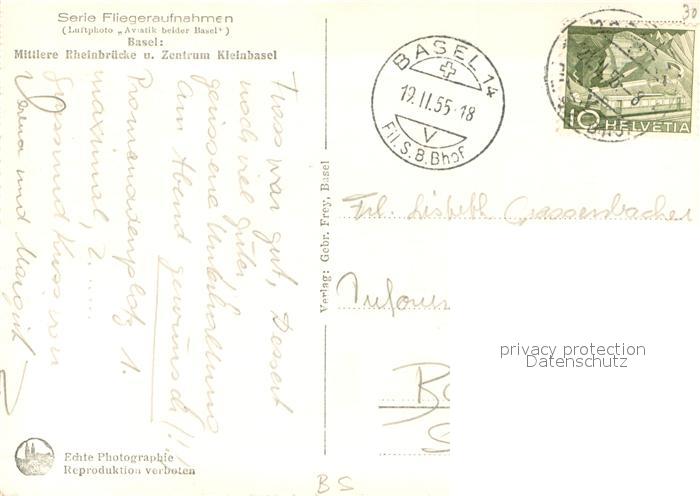 Serie Fliegeraufnahmen
(Luftphoto „Aviatik beider Basel")
Basel:
Mittlere Rheinbrücke u. Zentrum Kleinbasel
Frass war gut, Dessert
noch viel guter
geissene Unterhaltung
am Abend gewünscht!!!
Promenadenplatz 1.
maximal,
Gruss und Kuss von
Verena und Margrit
Verlag: Gebr. Frey, Basel
BASEL 14
19.II.55-18
V
Fil.S.B.Bhof
10 HELVETIA
30
Frl. Lisbeth Grassersbacher
privacy protection
Datenschutz
Echte Photographie
Reproduktion verboten
BS